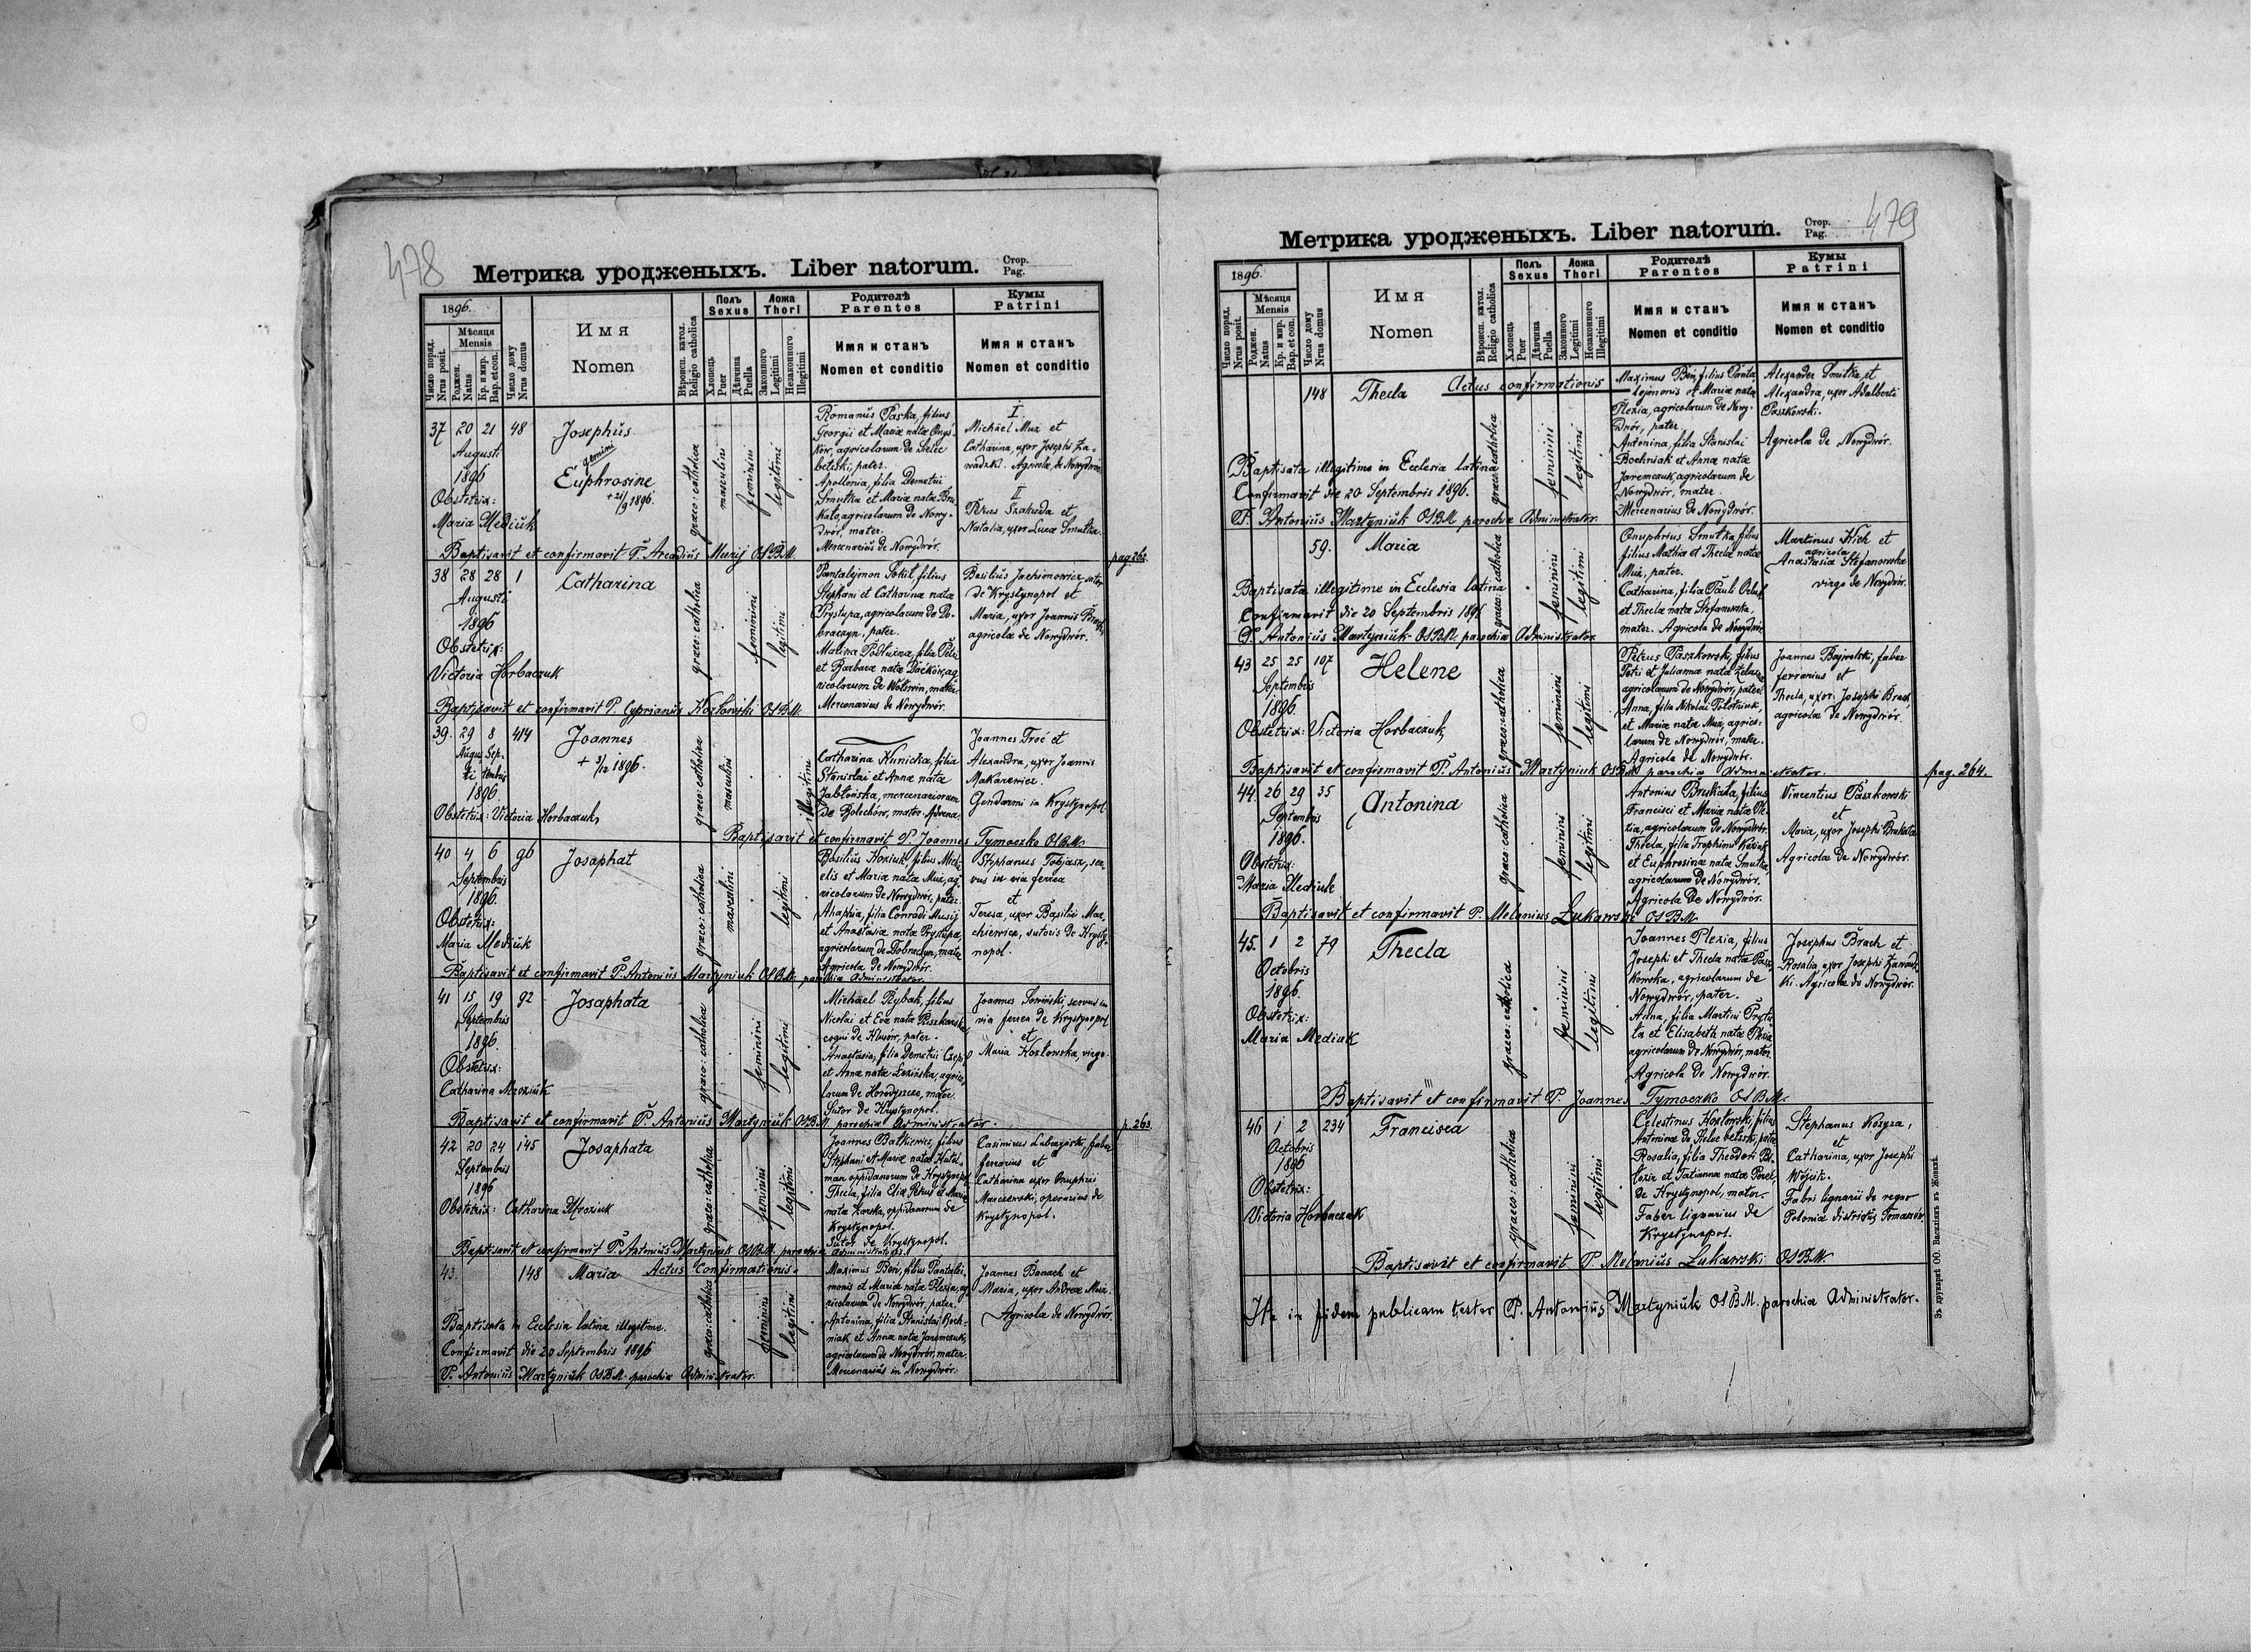 478
Метрика уродженыхъ. Liber natorum.
Стор.
Pag.
1896.
Число поряд.
Nrus posit.
Мѣсяця
Mensis
Роджен.
Natus
Кр. и мир.
Bap. et con.
Число дому
Nrus domus
Имя
Nomen
Вѣроисп. катол.
Religio catholica
Полъ
Sexus
Хлопець
Puer
Дѣвчина
Puella
Ложа
Thori
Законного
Legitimi
Незаконного
Illegitimi
Родителѣ
Parentes
Имя и станъ
Nomen et conditio
Кумы
Patrini
Имя и станъ
Nomen et conditio
37 20 21 48 Josephus
Augusti
gemini
1896
Euphrosine
+ 21/9 1896.
Obstetrix:
Maria Mediuk
graeco: catholica
masculini
feminini
legitimi
Romanus Paska, filius
Georgii et Mariæ natæ
agricolarum de Sielec
bełzki, pater.
Apollonia, filia Demetrii
Smutka et Mariæ natæ Bru
kało, agricolarum de Nowy-
dwór, mater.
Mercenarius de Nowydwór.
I
Michael Muz et
Catharina, uxor Josephi Za-
wadzki. Agricolæ de Nowydwór
II
Petrus Szakuda et
Natalia, uxor Lucæ Smutka.
Baptisavit et confirmavit P. Arcadius Muzij OSBM.
pag. 262.
38 28 28 1 Catharina
Augusti
1896
Obstetrix:
Victoria Horbaczuk
graeco: catholica
feminini
legitimi
Pantalejmon Sokit, filius
Stephani et Catharina natæ
Prystupa, agricolarum de Do-
braczyn, pater.
Malina filia Petri
et Barbaræ natæ ag
ricolarum de Wolswin, mater
Mercenarius de Nowydwór.
Basilius Jachimowicz, sutor
de Krystynopol et
Maria, uxor Joannis
agricolæ de Nowydwór.
Baptisavit et confirmavit P. Cyprianus Kozłowski OSBM.
39. 29 8 414 Joannes
Augus Sep-
ti tembris
+ 3/12 1896.
1896
Obstetrix: Victoria Horbaczuk,
graeco: catholica
masculini
illegitimi
Catharina Kunicka, filia
Stanislai et Annæ natæ
Jabłońska, mercenariorum
de Bolechów, mater. Advena.
Joannes Troć et
Alexandra, uxor Joannis
Makarewicz.
Gendarmi in Krystynopol.
Baptisavit et confirmavit P. Joannes Tymoczko OSBM.
40 4 6 96 Josaphat
Septembris
1896.
Obstetrix:
Maria Mediuk
graeco: catholica
masculini
legitimi
Basilius Koziuk, filius Mich-
elis et Mariæ natæ Muz, ag
ricolarum de Nowydwór, pater
Ahaphia, filia Conradi Musij
et Anastasiæ natæ Prystupa,
agricolarum de Dobraczyn, mater
Agricola de Nowydwór.
Stephanus Tobiasz, ser
vus in via ferrea
et
Teresa, uxor Basilii Mar
chiewicz, sutoris de Krysty-
nopol.
Baptisavit et confirmavit P. Antonius Martyniuk OSBM. parochiæ administrator.
41 15 19 92 Josaphata
Septembris
1896.
Obstetrix:
Catharina Mroziuk
graeco: catholica
feminini
legitimi
Michael Rybak, filius
Nicolai et Evæ natæ
coqui de Klusow, pater.
Anastasia, filia Demetrii
et Annæ natæ Lozińska, agrico
larum de mater.
Sutor de Krystynopol.
Joannes servus in
via ferrea de Krystynopol
et
Maria Kozłowska, virgo.
Baptisavit et confirmavit P. Antonius Martyniuk OSBM. parochiæ administrator.
p. 263.
42 20 24 145 Josaphata
Septembris
1896
Obstetrix: Catharina Mroziuk
graeco: catholica
feminini
legitimi
Joannes Batkiewicz, filius
Stephani et Mariæ natæ
man oppidanorum de Krystynopol
Thecla, filia Eliæ Petrus et Mariæ
natæ oppidanorum de
Krystynopol.
Sutor de Krystynopol.
Casimirus faber
ferrarius et
Catharina uxor Onuphrii
operarius de
Krystynopol.
Baptisavit et confirmavit P. Antonius Martyniuk OSBM. parochiæ administrator.
43. 148 Maria Actus Confirmationis.
Baptisata in Ecclesia latina illegitime.
Confirmavit die 20 Septembris 1896
P. Antonius Martyniuk OSBM. parochiæ Administrator.
graeco: catholica
feminini
legitimi
Maximus Ben, filius Pantalei
monis et Mariæ natæ Plexia, ag
ricolarum de Nowydwór, pater.
Antonina, filia Stanislai Boch-
niak et Annæ natæ Jaremczuk,
agricolarum de Nowydwór, mater
Mercenarius in Nowydwór.
Joannes Banach et
Maria, uxor Andreæ Muz.
Agricolæ de Nowydwór.
479
Метрика уродженыхъ. Liber natorum.
Стор.
Pag.
1896.
Число поряд.
Nrus posit.
Мѣсяця
Mensis
Роджен.
Natus
Кр. и мир.
Bap. et con.
Число дому
Nrus domus
Имя
Nomen
Вѣроисп. катол.
Religio catholica
Полъ
Sexus
Хлопець
Puer
Дѣвчина
Puella
Ложа
Thori
Законного
Legitimi
Незаконного
Illegitimi
Родителѣ
Parentes
Имя и станъ
Nomen et conditio
Кумы
Patrini
Имя и станъ
Nomen et conditio
148 Thecla Actus confirmationis
Baptisata illegitime in Ecclesia latina
Confirmavit die 20 Septembris 1896.
P. Antonius Martyniuk OSBM parochiæ Administrator.
graeco: catholica
feminini
legitimi
Maximus Ben, filius Panta
lejmonis et Mariæ natæ
Plexia, agricolarum de Nowy-
dwór, pater
Antonina, filia Stanislai
Bochniak et Annæ natæ
Jaremczuk, agricolarum de
Nowydwór, mater.
Mercenarius de Nowydwór.
Alexander Smutka, et
Alexandra, uxor Adalberti
Paszkowski.
Agricolæ de Nowydwór.
59. Maria
Baptisata illegitime in Ecclesia latina
Confirmavit die 20 Septembris 1896
P. Antonius Martyniuk OSBM. parochiæ Administrator
graeco: catholica
feminini
legitimi
Onuphrius Smutka, filius
filius Mathiæ et Theclæ natæ
Muz, pater.
Catharina, filia Pauli
et Theclæ natæ Stefanowska,
mater. Agricola de Nowydwór
Martinus Kich et
agricola
Anastasia Stefanowska
virgo de Nowydwór.
43 25 25 107 Helene
Septembris
1896.
Obstetrix: Victoria Horbaczuk,
graeco: catholica
feminini
legitimi
Petrus Paszkowski, filius
Petri et Juliannæ natæ
agricolarum de Nowydwór, pater
Anna, filia Nikolai
et Mariæ natæ Muz, agrico-
larum de Nowydwór, mater.
Agricola de Nowydwór.
Joannes faber
ferrarius et
Thecla, uxor Josephi Brach,
agricolæ de Nowydwór.
Baptisavit et confirmavit P. Antonius Martyniuk OSBM parochiæ administrator.
pag. 264.
44. 26 29 35 Antonina
Septembris
1896.
Obstetrix:
Maria Mediuk
graeco: catholica
feminini
legitimi
Antonius Brukała, filius
Francisci et Mariæ natæ Ple
xia, agricolarum de Nowydwór.
Thecla, filia Trophimi Koziuk
et Euphrosinæ natæ Smutka,
agricolarum de Nowydwór.
Agricola de Nowydwór.
Vincentius Paszkowski
et
Maria, uxor Josephi Brukała
Agricolæ de Nowydwór.
Baptisavit et confirmavit P. Melanius Lukawski OSBM.
45. 1 2 79 Thecla
Octobris
1896.
Obstetrix:
Maria Mediuk
graeco: catholica
feminini
legitimi
Joannes Plexia, filius
Josephi et Theclæ natæ Pasz
kowska, agricolarum de
Nowydwór, pater.
Anna, filia Martini Pryta
ła et Elisabeth natæ Plexia
agricolarum de Nowydwór, mater.
Agricola de Nowydwór.
Josephus Brach et
Rosalia, uxor Josephi Zawadz
ki. Agricolæ de Nowydwór.
Baptisavit et confirmavit P. Joannes Tymoczko OSBM.
46 1 2 234 Francisca
Octobris
1896
Obstetrix:
Victoria Horbaczuk
graeco: catholica
feminini
legitimi
Celestinus Kozłowski, filius
Antoninæ de Sielec bełzski, pater
Rosalia, filia Theodori
et Tatiannæ natæ
de Krystynopol, mater.
Faber lignarius de
Krystynopol.
Stephanus Kozyra,
et
Catharina, uxor Josephi
Wójcik.
Fabri lignarii de regno
Poloniæ districtus Tomaszów
Baptisavit et confirmavit P. Melanius Lukawski OSBM.
Ita in fidem publicam testor P. Antonius Martyniuk OSBM. parochiæ Administrator.
Зъ друкарнѣ ОО. Василіянъ въ Жовквѣ.